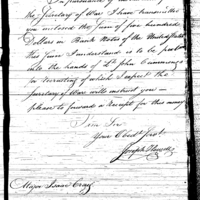 the Secretary of War I have transmitted
you inclosed the Sum of five hundred
Dollars in Bank Notes of the United States
This Sum I understand is to be put
into the hands of Lt John Cummings
in recruiting of which I expect the
Secretary of War will instruct you —
please to forward a receipt for this money
I am Sir
Your Obedt Servt
Joseph Howell
Major Isaac Craig